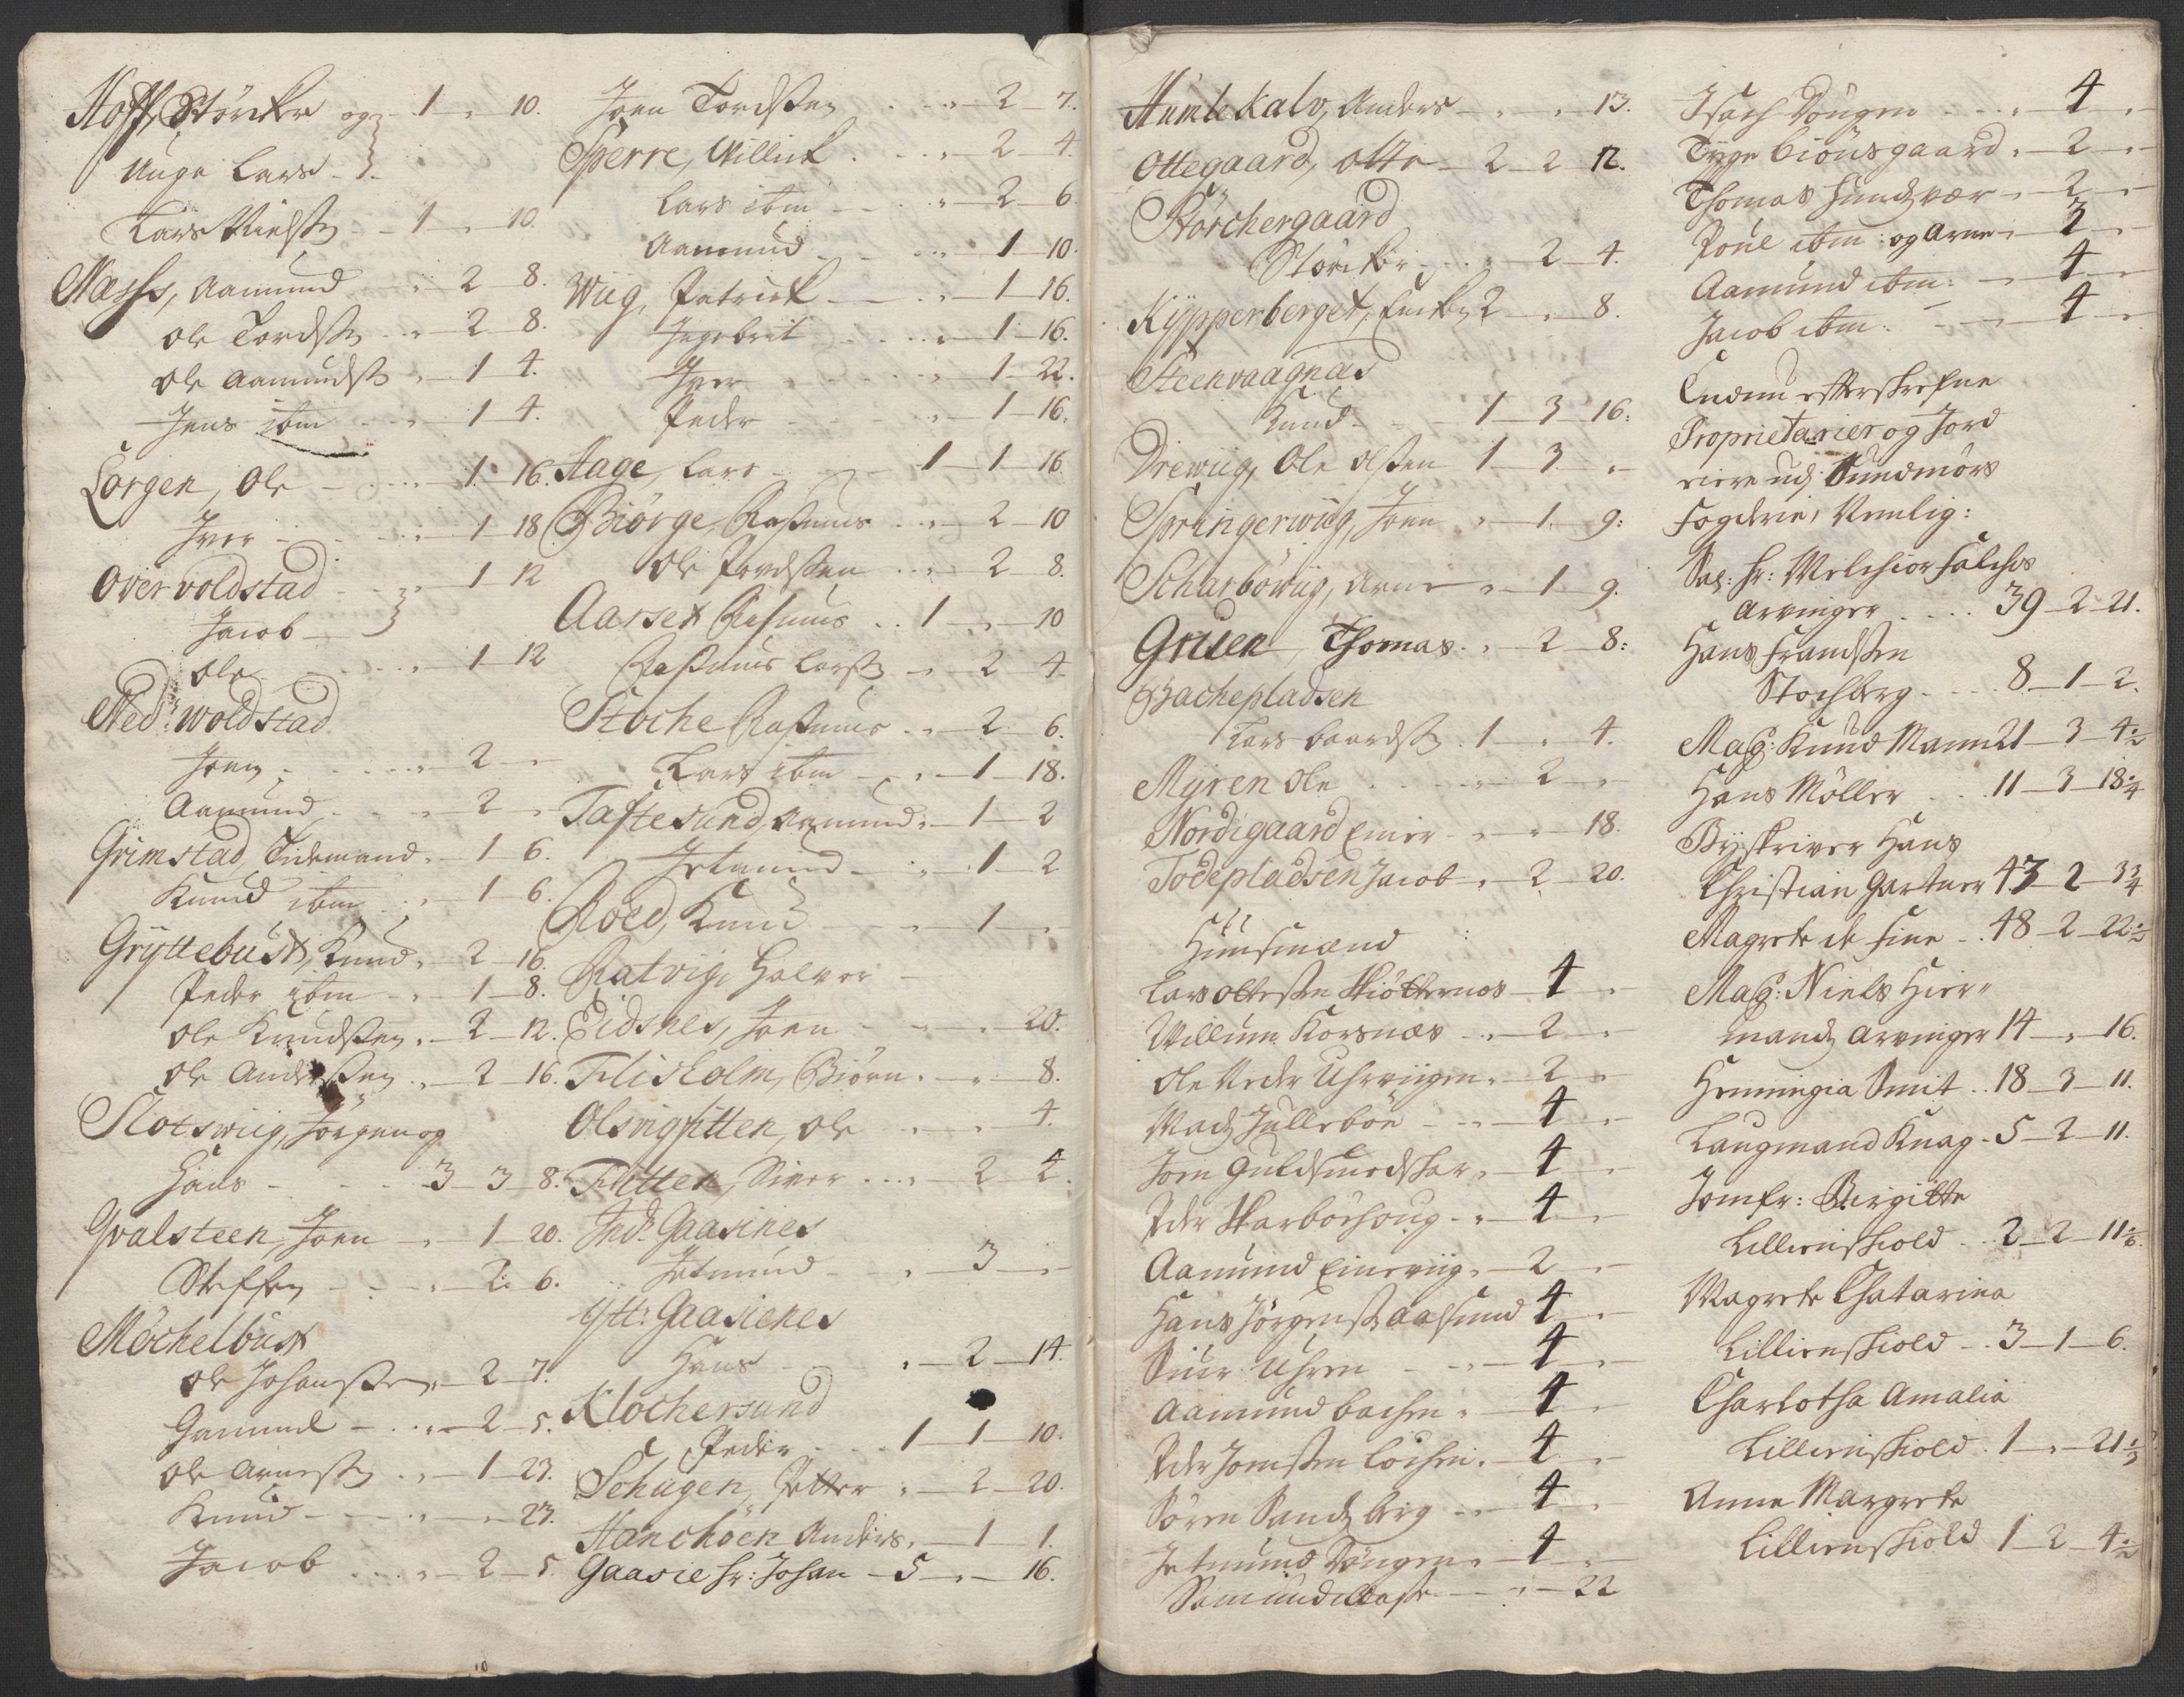 Hoff, Störcker og - 1 - " - 10.
Unge Lars -
Lars Nielsß: - 1 - " - 10.
Næsß, Aamund " - 2 - 8.
Ole Tordsß: " - 2 - 8.
Ole Aamundsß: " - 1 - 4.
Jens ibm " - 1 - 4.
Lorgen, Ole - " - 1 - 16.
Iver - " - 1 - 18
Over voldstad - " - 1 - 12
Jacob -
Ole - " - 1 - 12
Ned: woldstad
Joen - " - 2 - "
Aamund - " - 2 - "
Grimstad, Tidemand " - 1 - 6.
Knud ibm " - 1 - 6.
Gryttebust, Knud " - 2 - 16.
Peder ibm " - 1 - 8.
Ole Knudsßen " - 2 - 12.
Ole Andersßen " - 2 - 16.
Slotswiig, Jörgen og
Hans - 3 - 3 - 8.
Gvalsteen, Joen " - 1 - 20.
Steffen - " - 2 - 6.
Möchelbust
Ole Johansßen " - 2 - 7.
Gamund - " - 2 - 5.
Ole Arnesß: " - 1 - 23.
Knud - " - " - 23.
Jacob " - 2 - 5.
Joen Tordsßen " - 2 - 7.
Sperre, Willick " - 2 - 4.
Lars ibm - " - 2 - 6
Aamund - " - 1 - 10.
Wiig, Patrick - " - 1 - 16.
Ingebret " - 1 - 16.
Iver " - 1 - 22.
Peder " - 1 - 16.
Hage, Lars - 1 - 1 - 16
Biörge, Rasmus " - 2 - 10
Ole Jordsßen " - 2 - 8.
Aarset Rasmus 1 - " - 10
Rasmus Larsß: " - 2 - 4
Stoche Rasmus " - 2 - 6.
Lars ibm - " - 1 - 18.
Taftesund, Aamund " - 1 - 2
Jetmund - " - 1 - 2
Roed, Knud - " - 1 - "
Ratvig, Halvor -
Eidsnes, Joen - " - " - 20.
Flisholm, Biörn " - " - 8.
Olsingsitten, Ole " - " - 4.
Flitten, Siver " - 2 - 4.
Ind: Gaasines
Jetmund " - 3 - "
Ytt: Gaasienes
Hans " - 2 - 14.
Klochersund
Peder - 1 - 1 - 10.
Schugen, Petter " - 2 - 20.
Hanchöen Anders " - 1 - 1.
Gaasie hr: Johan - 5 - " - 16.
Humlekalv, Anders - " - " - 13.
Ottegaard, Otte - 2 - 2 - 12.
Störchergaard
Störcker " - 2 - 4.
Kypperberget, 2 - " - 8.
Steenvaagnæs
Knud - 1 - 3 - 16:
Drewiig, Ole Olsßen 1 - 3 - "
Springerwiig, Joen " - 1 - 9:
Scharböwiig, Arne " - 1 - 9.
Gruen, Thomas " - 2 - 8:
Bachepladsen
Lars Baardsß: 1 - " - 4.
Myren Ole " - 2 - "
Nordigaard Einer - " - " - 18.
Todepladsen Jacob " - 2 - 20.
Huusmænd
Lars Ottesßen 4 - "
Willum Korsnæs " - 2 - "
Ole Neder Uhrviigen " - 2 - "
Mads Jullebön " - 4 - "
Joen Guldsmedskar " - 4 - "
Peder Skarböhoug " - 4 - "
Aamund Einerviig " - 2 - "
Hans Jörgensß: Aalsund 4 - "
Siur Uhren - " - 4 - "
Aamund Bachen " - 4 - "
Peder Joensßen Lochen " - 4 - "
Sören Sandberg " - 4 - "
Jetmund Döngen " - 4 - "
Samund - " - 22
Isach Döngen " - 4 - "
Tyge Biönsgaard " - 2 - "
Thomas Hundsvær " - 2 - "
Poul ibm: og Arne " - 3 - "
Aamund ibm: - 4 - "
Jacob ibm: - 4 - "
Endnu efterskrefne
Proprietarier og Jord
eiere udj Sundmörs
Fogderie, Nemlig:
Sal: hr: Melchior Falchs
Arvinger 39 - 2 - 21.
Hans Frandsßen
Stochberg - 8 - 1 - 2.
Mag: Knud Mann 21 - 3 - 4½
Hans Möller 11 - 3 - 18¼
Byskriver Hans
Christian Gartner 43 - 2 - 3¾
Magrete de Fine - 48 - 2 - 22½
Mag: Niels Hier-
mands Arvinger 14 - " - 16.
Henningia Smit 18 - 3 - 11.
Laugmand Knag - 5 - 2 - 11.
Jomfr: Birgitte
Lillienskiold - 2 - 2 - 11⅙
Magrete Chatarina
Lillienskiold - 3 - 1 - 6.
Charlotha Amalia
Lillienskiold 1 - " - 21⅓
Anne Margrete
Lillienskiold 1 - 2 - 4½